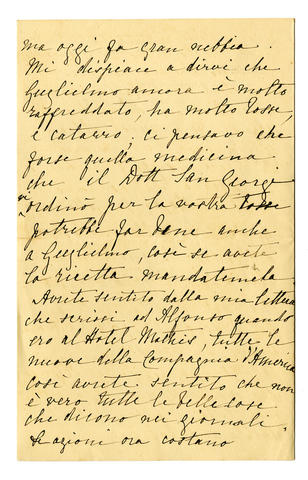 ma oggi fa gran nebbia.
Mi dispiace a dirvi che
Guglielmo ancora è molto
raffreddato, ha molto tosse,
e catarro; ci pensavo che
forse quella medicina
che il Dott San Giorgi
vi ordinò per la vostra tosse
potrebbe far bene anche
a Guglielmo, così se avete
la ricetta mandatemela.
Avrete sentito dalla mia lettera
che scrissi ad Alfonso quando
ero al Hotel Mathis, tutte le
nuove della Compagnia d'America
così avrete sentito che non
è vero tutte le belle cose
che dicono nei giornali.
Le azioni ora costano